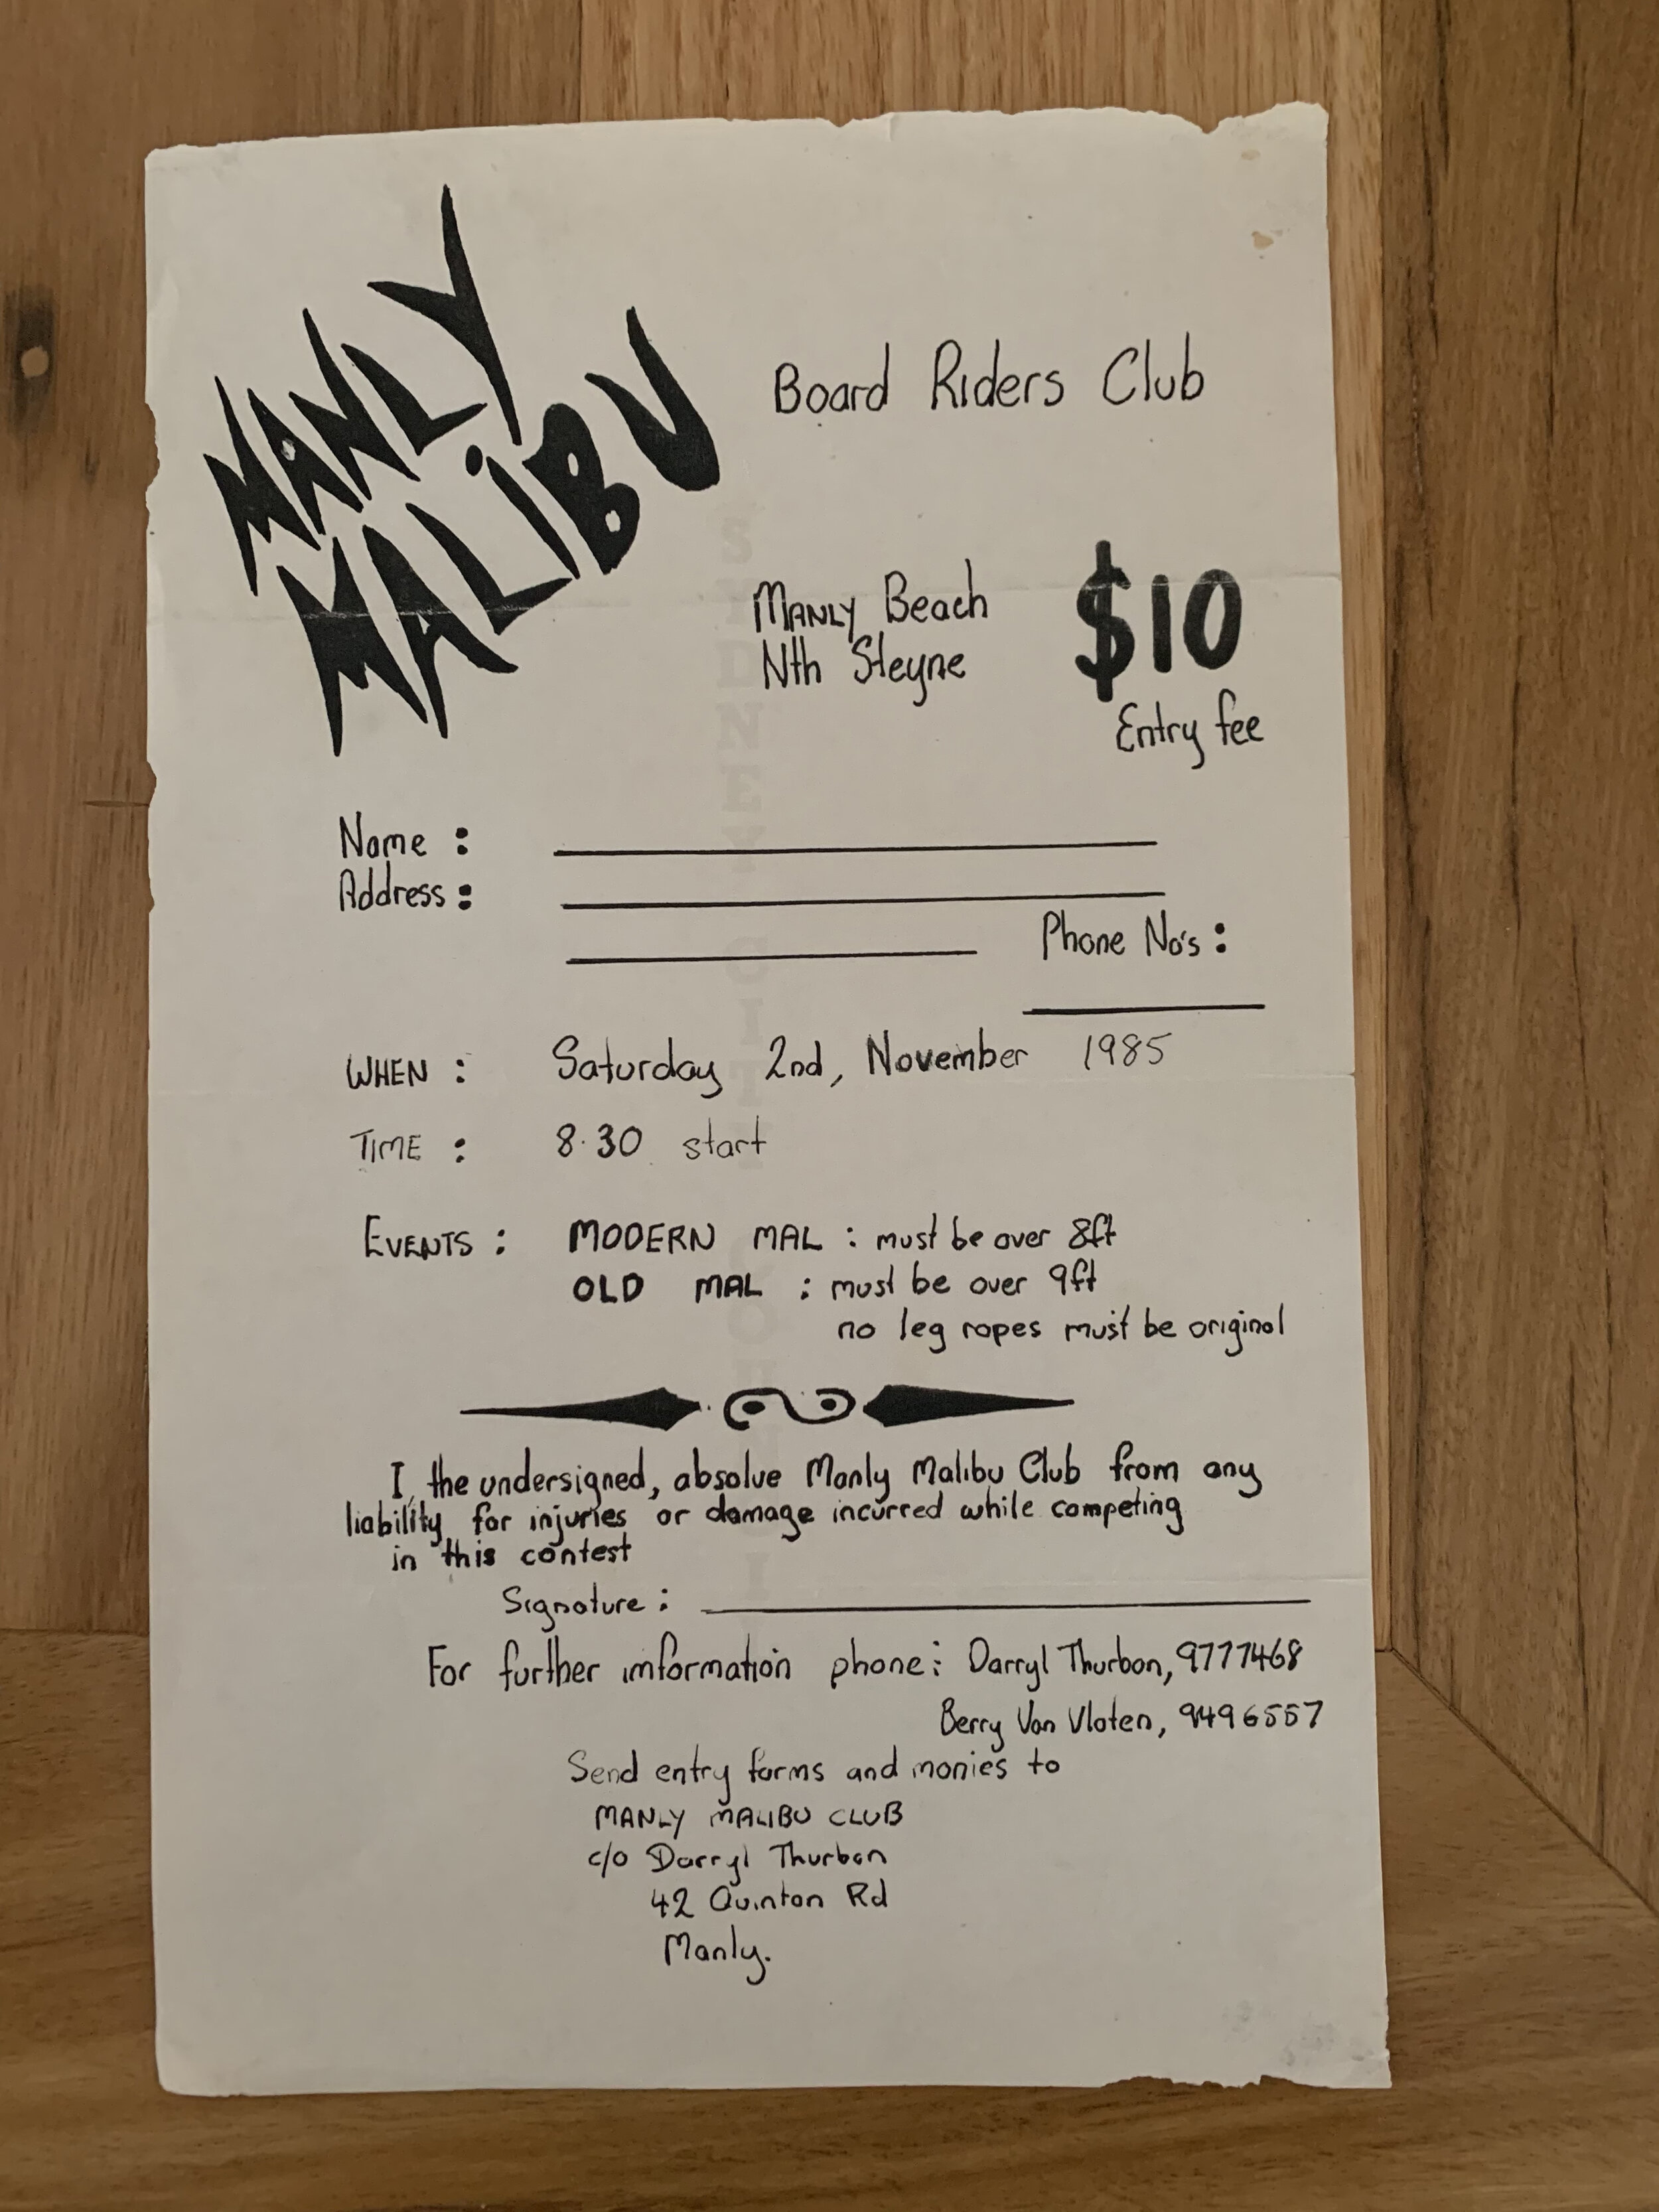 MANLY
MALiBU
Board Riders Club
MANLY Beach
Nth Steyne
$10
Entry fee
Name :
Address :
Phone No's :
WHEN : Saturday 2nd, November 1985
TIME : 8.30 start
EVENTS : MODERN MAL : must be over 8ft
OLD MAL : must be over 9ft
no leg ropes must be original
I, the undersigned, absolve Manly Malibu Club from any
liability for injuries or damage incurred while competing
in this contest
Signature :
For further imformation phone : Darryl Thurbon, 9777468
Berry Van Vloten, 9496557
Send entry forms and monies to
MANLY MALIBU CLUB
c/o Darryl Thurbon
42 Quinton Rd
Manly.